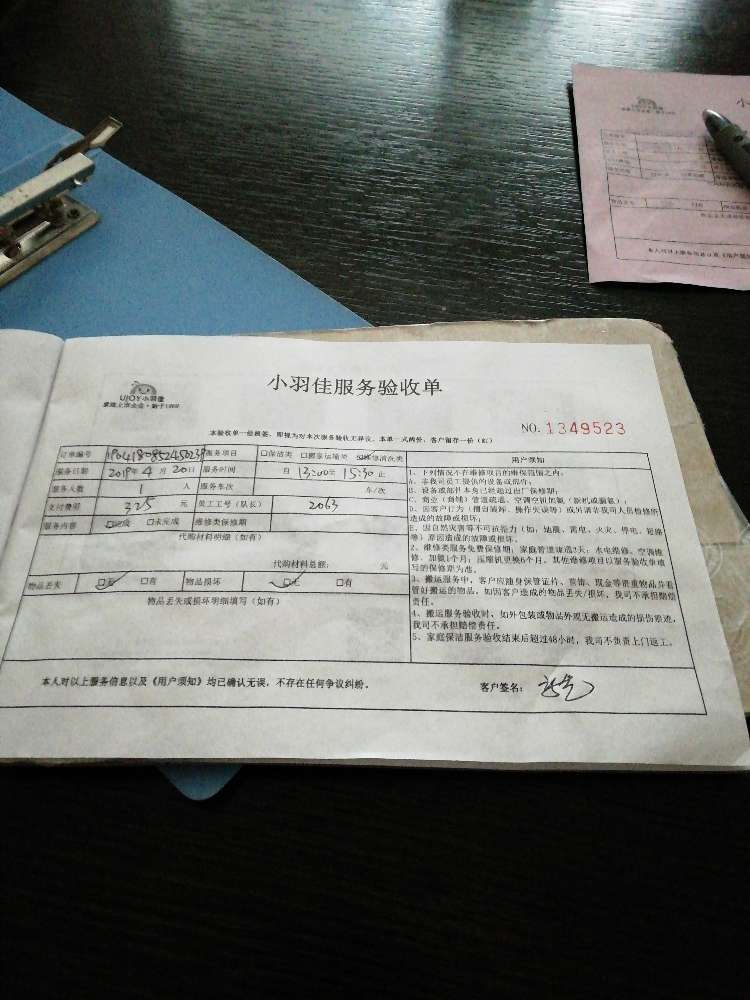 小羽佳服务验收单
UJOY小羽佳
家政上市企业·始于1999
NO. 1349523
本验收单一经核签，即视为对本次服务验收无异议，本单一式两份，客户留存一份（红）
订单编号 服务项目 □保洁类 □搬家运输类 维修清洗类
服务日期 2019年4月20日 服务时间 日 13:00至15:30止
服务人数 1 人 服务车次 车/次
支付费用 325 元 员工工号（队长） 2063
服务内容 □完成 □未完成 维修类保修期
代购材料明细（如有）
代购材料总额： 元
物品丢失 □无 □有 物品损坏 □无 □有
物品丢失或损坏明细填写（如有）
用户须知
1、下列情况不在维修项目的维保范围之内：
A、非我司员工提供的设备或部件；
B、设备或部件本身已经超过出厂保修期；
C、商业（商铺）管道疏通、空调空管加氟（新机或漏氟）；
D、因客户行为（擅自破坏、操作失误等）或另请非我司人员检修所
造成的故障或损坏；
E、因自然灾害等不可抗力（如：地震、雷电、火灾、停电、短路
等）原因造成的故障或损坏。
2、维修类服务免费保修期：家庭管道疏通3天；水电维修、空调维
修、加氟1个月；压缩机更换6个月。其他维修项目以服务验收单填
写的保修期为准。
3、搬运服务中，客户应随身保管证件、首饰、现金等贵重物品并看
管好搬运的物品。如因客户造成的物品丢失/损坏，我司不承担赔偿
责任。
4、搬运服务验收时，如外包装或物品外观无搬运造成的损伤痕迹，
我司不承担赔偿责任。
5、家庭保洁服务验收结束后超过48小时，我司不负责上门返工。
本人对以上服务信息以及《用户须知》均已确认无误，不存在任何争议纠纷。
客户签名：